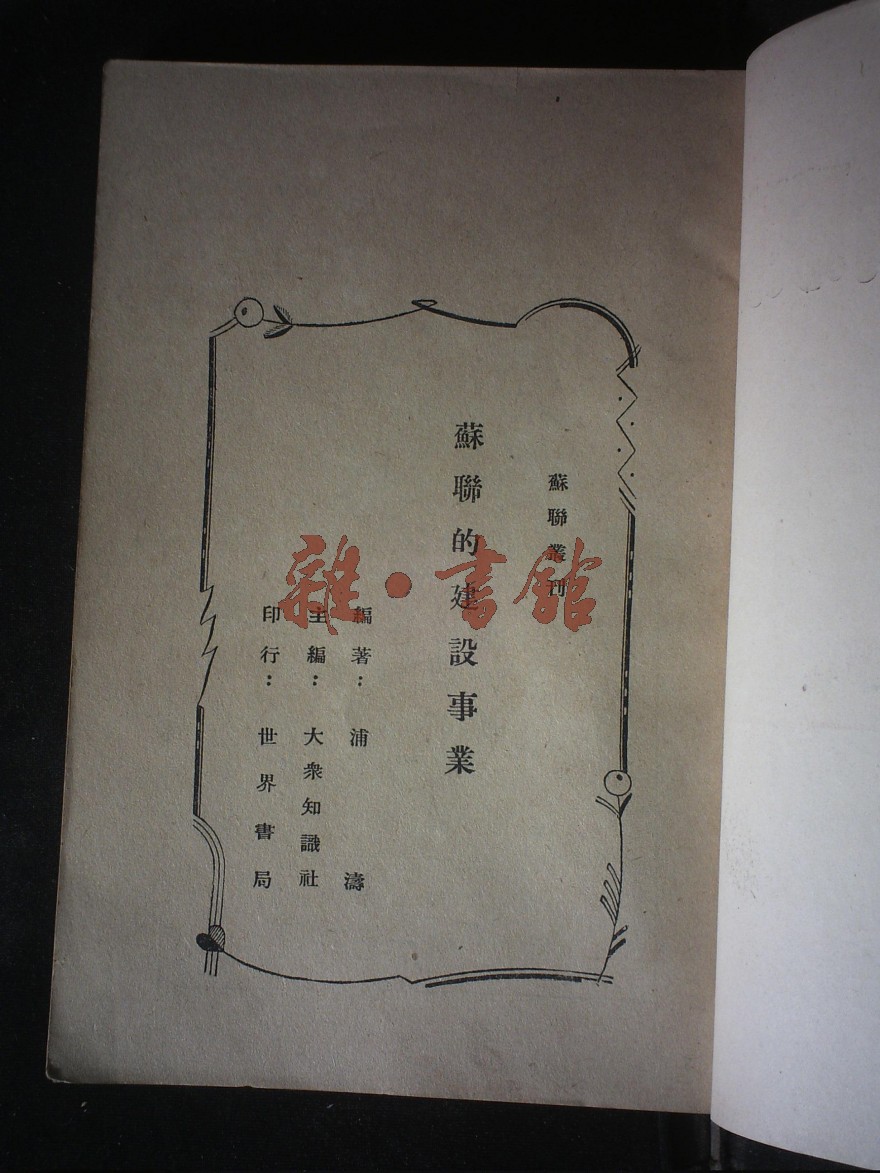 蘇聯叢刊
蘇聯的建設事業
編著：浦濤
主編：大衆知識社
印行：世界書局
雜·書館